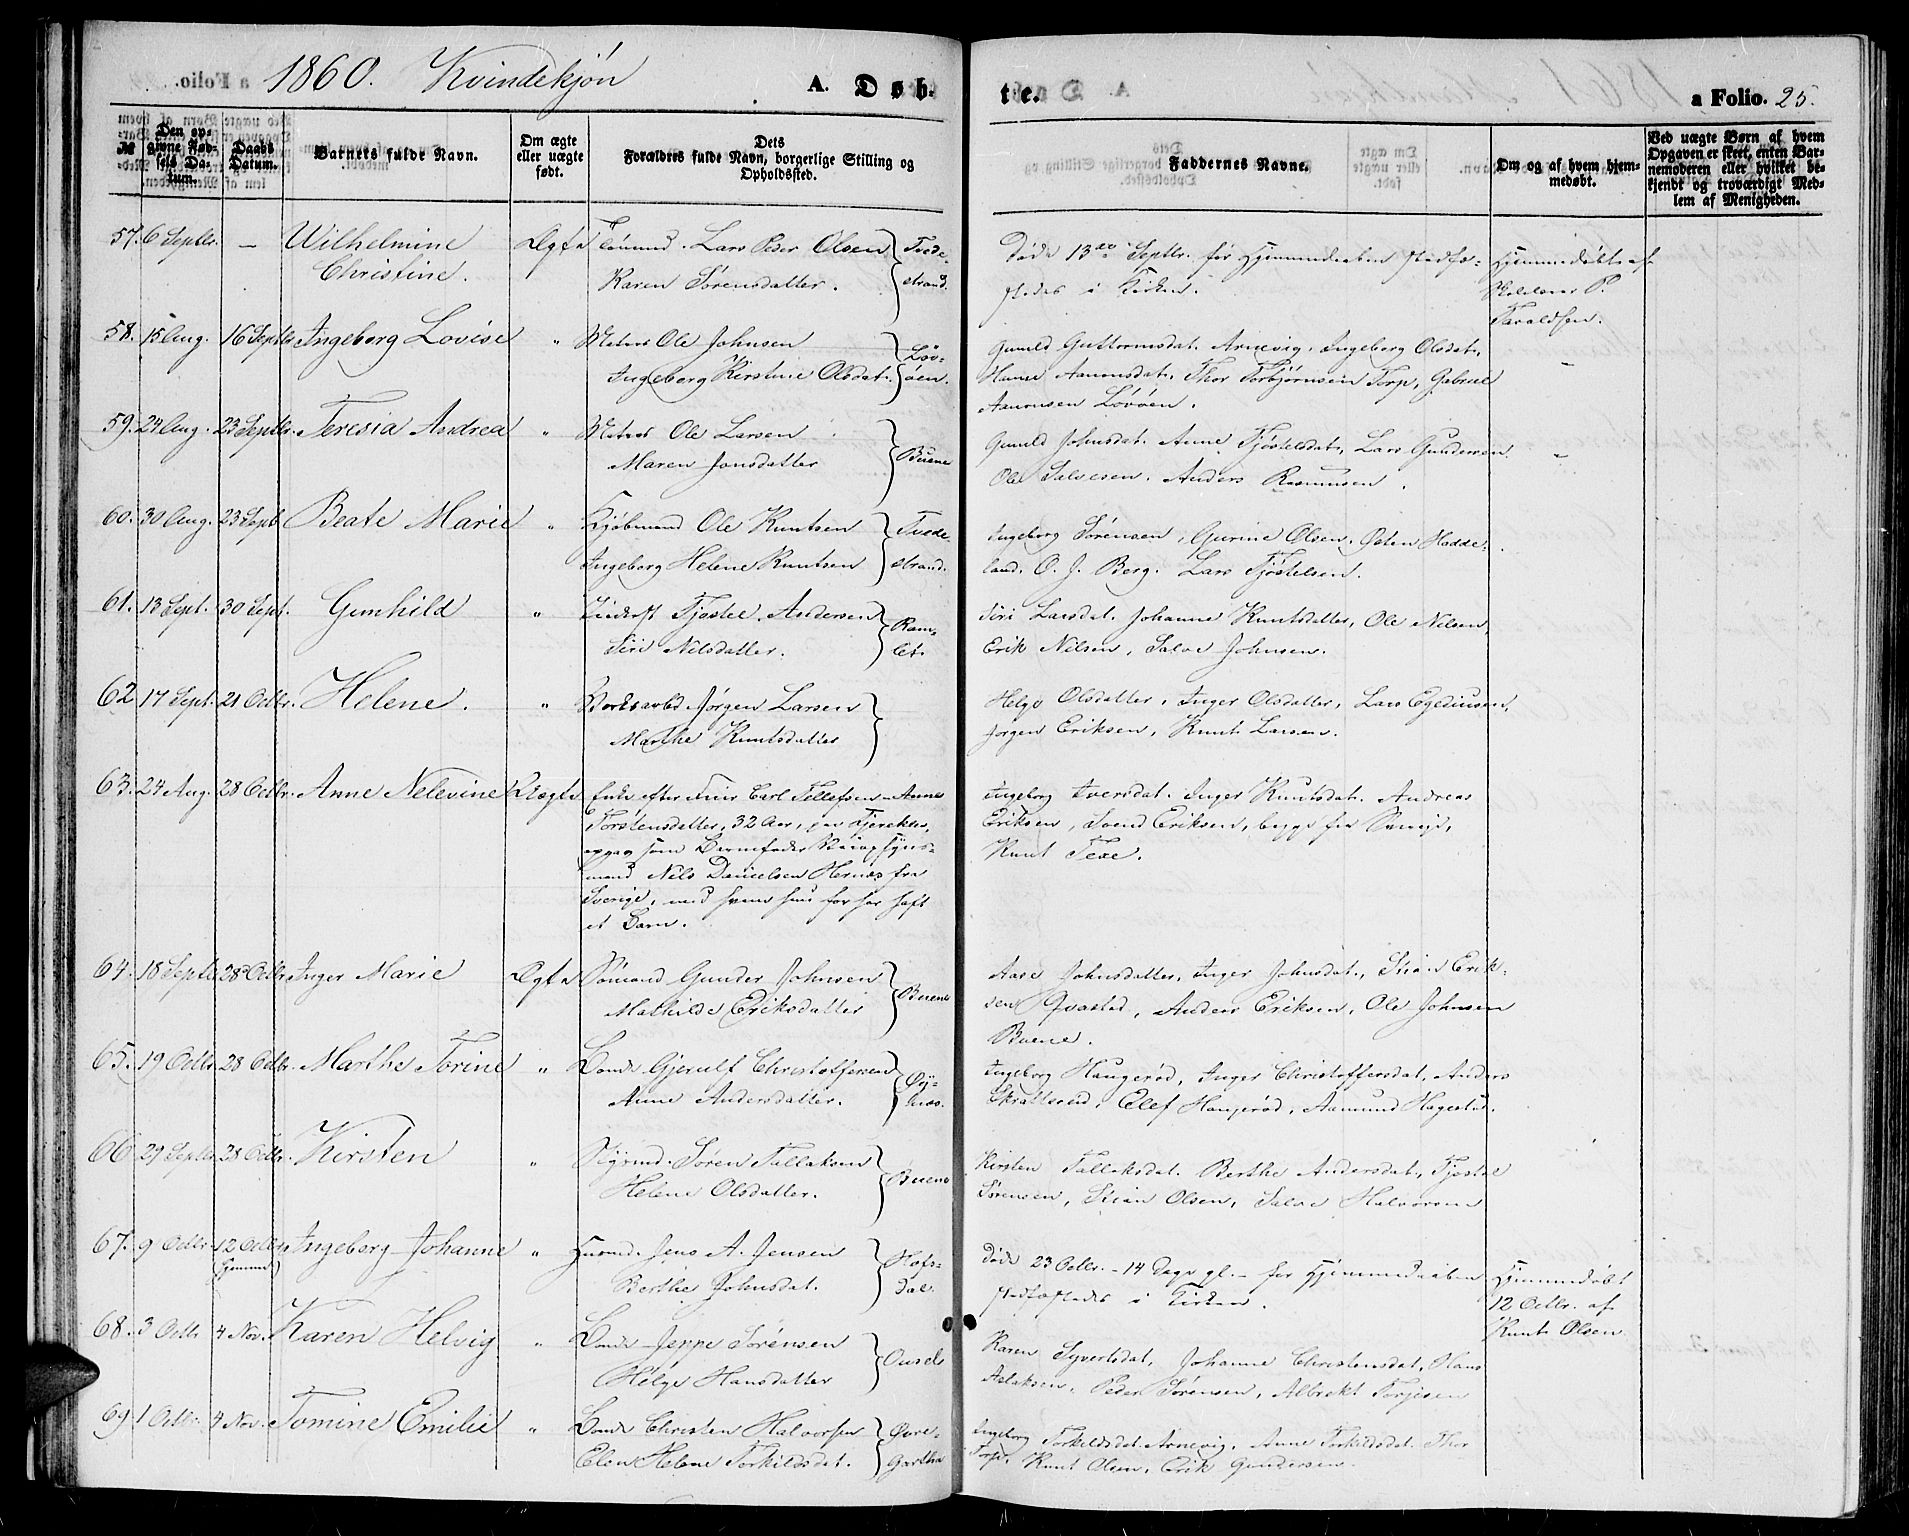 1860. Kvindekjøn A. Døb-
te. a Folio. 25.
№
Den op-
givne Fød-
sels Da-
tum.
Daabs
Datum.
Barnets fulde Navn.
Om ægte
eller uægte
født.
Dets
Forældres fulde Navn, borgerlige Stilling og
Opholdssted.
Faddernes Navne.
Om og af hvem hjem-
medøbt.
Ved uægte Børn af hvem
Opgaven er skeet, enten Bar-
nemoderen eller hvilket be-
kjendt og troværdigt Med-
lem af Menigheden.
57. 6 Septbr. — Wilhelmine Ægte Lars Peder Olsen Tvede-
Christine. Karen Sørensdatter. strand.
Døde 13de Septbr. før Hjemmedaaben stadfæ-
stedes i Kirken.
Hjemmedøbt af
Skolelærer P.
Taraldsen.
58. 15 Aug. 16 Septbr Ingeborg Lovise " Matros Ole Johnsen Løv-
Ingeborg Kirstine Olsdat. øen.
Gunild Guttormsdat. Arnevig, Ingeborg Olsdat.,
Hanse Aanonsdat., Thor Torbjørnsen Torp, Gabriel
Aanonsen Løvøen.
59. 24 Aug. 23 Septbr. Teresia Andrea " Matros Ole Larsen
Maren Jonsdatter Buene
Gunild Johnsdat. Anne Tjøstelsdat., Lars Gundersen
Ole Salvesen. Anders Rasmusen.
60. 30 Aug. 23 Septb Beate Marie " Kjøbmand Ole Knutsen Tvede-
Ingeborg Helene Knutsen strand.
Ingeborg Sørensen, Gurine Olsen, Osten Hodde-
land. O. J. Berg. Lars Tjøstelsen.
61. 13 Sept. 30 Sept. Gunhild " Inderst Tjøstel Andersen Ram-
Siri Nilsdatter. let.
Siri Larsdat. Johanne Knutsdatter, Ole Nilsen,
Erik Nilsen, Salve Johnsen.
62 17 Sept. 21 Octbr. Helene. " Jørgen Larsen
Marthe Knutsdatter
Helge Olsdatter, Inger Olsdatter, Lars Egediusen,
Jørgen Eriksen, Knut Larsen.
63. 24 Aug. 28 Octbr. Anne Nelevine Uægte Enke efter Carl Tellefsen Anne
Torstensdatter, 32 Aar,
opgav som Barnefader
mand Nils Danielsen Hernæs fra
Sverige, med hvem hun før har haft
et Barn.
Ingeborg Iversdat. Inger Knutsdat. Andreas
Eriksen, Svend Eriksen, begge fra Sverige,
Knut Texe.
64. 18 Septbr 28 Octbr Inger Marie Ægte Sømand Gunder Johnsen
Mathilde Eriksdatter Buene
Aase Johnsdatter, Inger Johnsdat., Stian Erik-
sen Qvastad, Anders Eriksen, Ole Johnsen
Buene.
65. 19 Octbr 28 Octbr. Marthe Torine " Bonde Gjerulf Christoffersen Øy-
Anne Andersdatter. næs.
Ingeborg Haugerød, Inger Christoffersdat., Anders
Skratteréid, Elef Haugerød, Aamund Hagestad.
66. 29 Septbr 28 Octbr. Kirsten " Søren Tallaksen
Helene Olsdatter. Buene
Kirsten Tallaksdat. Berthe Andersdat., Tjøstel
Sørensen, Stian Olsen, Salve Halvorsen
67. 9 Octbr 12 Octbr. Ingeborg Johanne " Husmd. Jens A. Jensen Hofs-
(hjemme) Berthe Johnsdat. dal.
Døde 23 Octbr. - 14 Dage gl. - før Hjemmedaaben
stadfæstedes i Kirken.
Hjemmedøbt
12 Octbr. af
Knut Olsen
68. 3 Octbr 4 Nov. Karen Helvig " Bonde Jeppe Sørensen Ousels
Helge Hansdatter
Karen Syvertsdat, Johanne Christensdat, Hans
Aslaksen. Peder Sørensen, Albrekt Torjesen
69. 1 Octbr 4 Nov. Tomine Emilie " Bonde Christen Halvorsen Øvre-
Elen Helene Torkildsdat. Gartha
Ingeborg Torkildsdat. Arnevig, Anne Torkildsdat. Thor
Torp, Knut Olsen, Erik Gundersen.